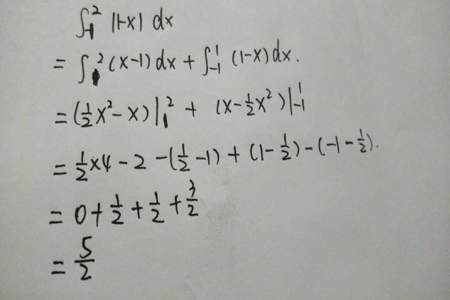 ∫₋₁² |1-x| dx
= ∫₁² (x-1) dx + ∫₋₁¹ (1-x) dx.
= (½x² - x)|₁² + (x - ½x²)|₋₁¹
= ½×4 - 2 - (½ - 1) + (1 - ½) - (-1 - ½).
= 0 + ½ + ½ + 3/2
= 5/2